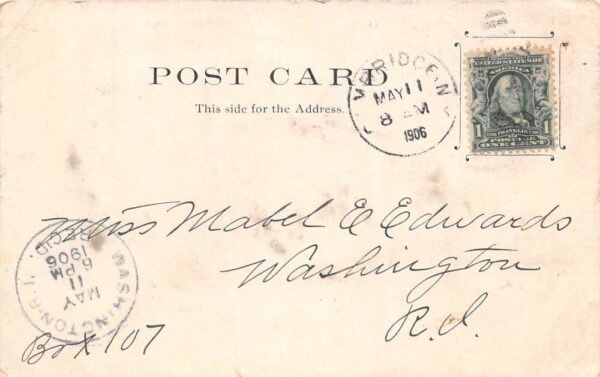 POST CARD
This side for the Address.
MAY 11
8 AM
1906
UNITED STATES OF
AMERICA
1 1
POSTAGE
ONE CENT
Miss Mabel E Edwards
Washington
R.I.
Box 107
WASHINGTON, R.I.
REC'D.
MAY
11
6 PM
1906